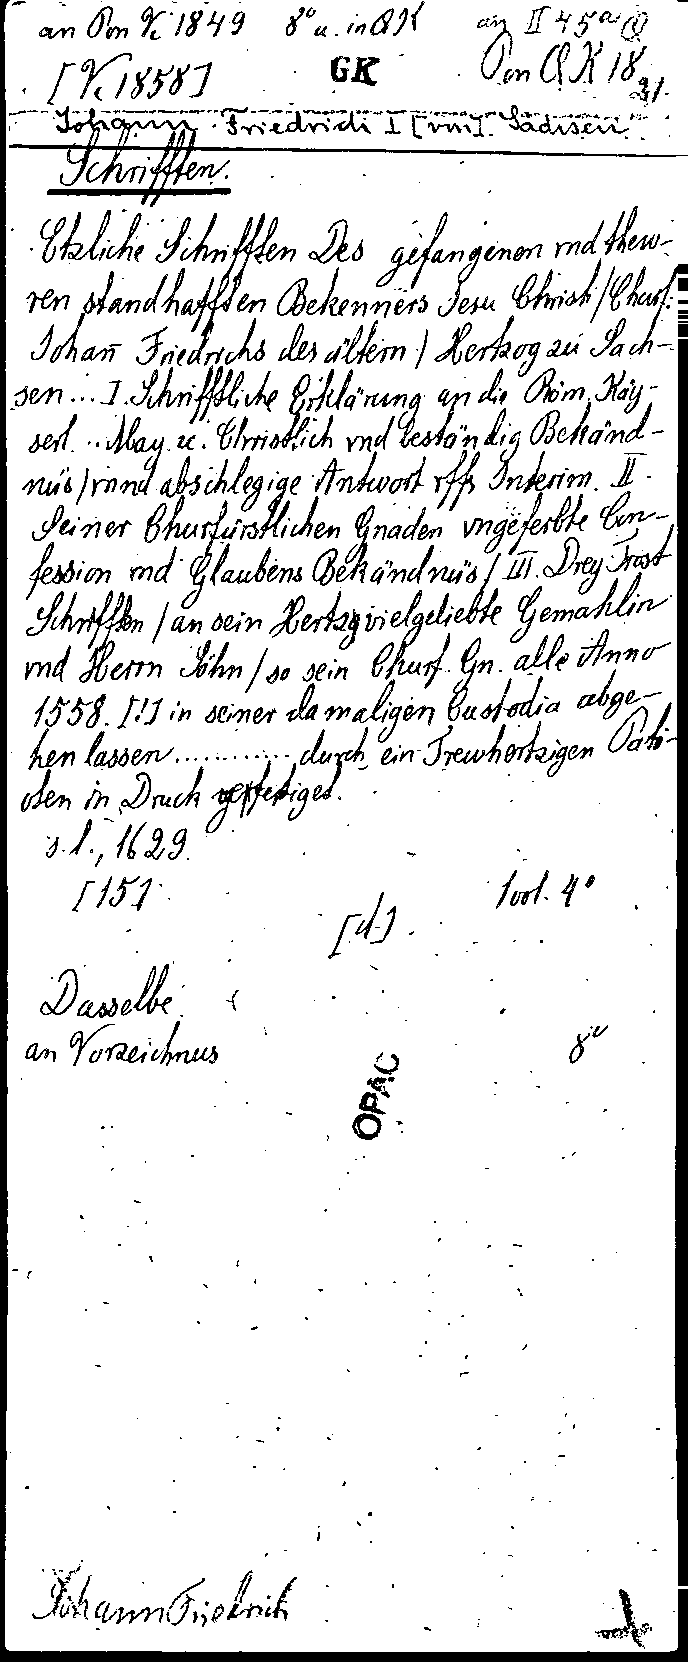 an Pon Vc 1849 8° u. in QK an II 45a Q
[Vc 1858] GK Pon QK 18
21.
Johann Friedrich I [von] Sachsen
Schrifften.
Etzliche Schrifften Des gefangenen vnd thew-
ren standhafften Bekenners Jesu Christi / Churf.
Johan̄ Friedrichs des ältern / Hertzog zu Sach-
sen... I. Schrifftliche Erklärung an die Röm. Käy-
serl. .. May. u. Christlich vnd beständig Bekänd-
nüs / vnnd abschlegige Antwort vffs Interim. II.
Seiner Churfürstlichen Gnaden vngeferbte Con-
fession vnd Glaubens Bekändnüs / III. Drey Trost
Schrifften / an sein Hertzvielgeliebte Gemahlin
vnd Herrn Söhn / so sein Churf. Gn. alle Anno
1558. [!] in seiner damaligen Custodia abge-
hen lassen ............ durch ein Trewhertzigen Patri-
oten in Druck verfertiget.
s.l., 1629.
[15] 1 vol. 4°
[d.]
Dasselbe
an Vorzeichnus 8°
OPAC
Johann Friedrich